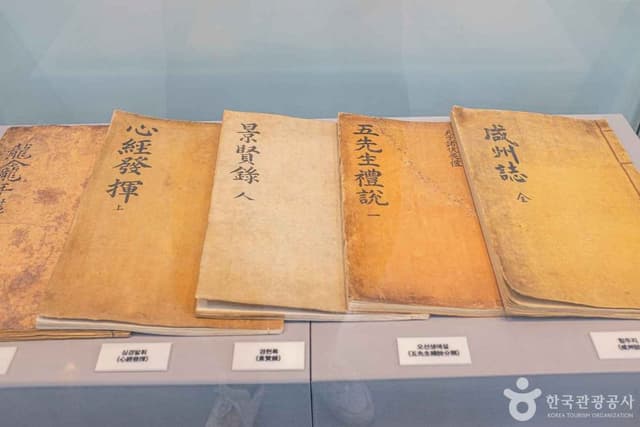 心經發揮
上
景賢錄
人
五先生禮說
一
咸州誌
全
심경발휘
(心經發揮)
경현록
(景賢錄)
오선생예설
(五先生禮說分類)
함주지
한국관광공사
KOREA TOURISM ORGANIZATION